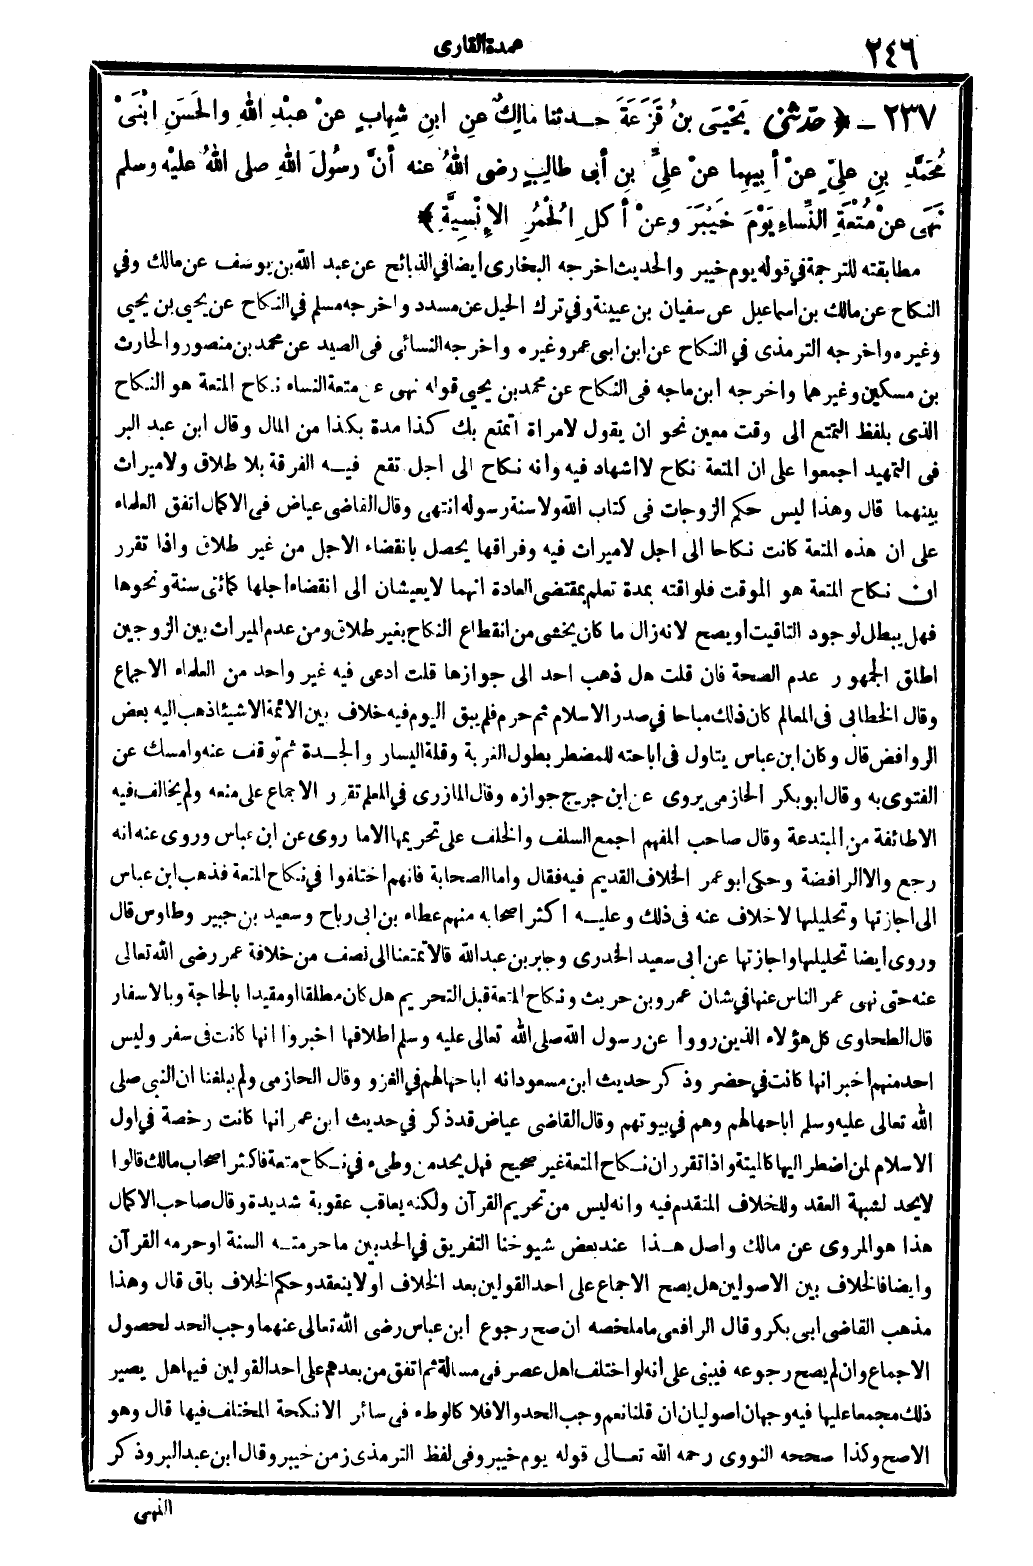 ٢٤٦
عمدة القارى
٢٣٧ ـ ﴿ حَدَّثَنِى يَحْيَى بنُ قَزَعَةَ حـدثنا مالِكٌ عنِ ابنِ شِهابٍ عنْ عبْدِ اللهِ والحَسَنِ ابْنَىْ
مُحَمَّدِ بنِ علِيٍّ عنْ أبِيهِما عنْ علِيِّ بنِ أبى طالِبٍ رضى اللهُ عنه أنَّ رسُولَ اللهِ صلى اللهُ عليْه وسلم
نَهَى عنْ مُتْعَةِ النِّساءِ يَوْمَ خَيْبَرَ وعنْ أكلِ الحُمُرِ الإنْسِيَّةِ ﴾
مطابقته للترجمة في قوله يوم خيبر والحديث اخرجه البخارى ايضا في الذبائح عن عبد الله بن يوسف عن مالك وفي
النكاح عن مالك بن اسماعيل عن سفيان بن عيينة وفي ترك الحيل عن مسدد واخرجه مسلم في النكاح عن يحيى بن يحيى
وغيره واخرجه الترمذى في النكاح عن ابن ابى عمر وغيره واخرجه النسائى فى الصيد عن محمد بن منصور والحارث
بن مسكين وغيرهما واخرجه ابن ماجه فى النكاح عن محمد بن يحيى قوله نهى عن متعة النساء نكاح المتعة هو النكاح
الذى بلفظ التمتع الى وقت معين نحو ان يقول لامراة اتمتع بك كذا مدة بكذا من المال وقال ابن عبد البر
فى التمهيد اجمعوا على ان المتعة نكاح لا اشهاد فيه وانه نكاح الى اجل تقع فيـه الفرقة بلا طلاق ولا ميراث
بينهما قال وهذا ليس حكم الزوجات فى كتاب الله ولا سنة رسوله انتهى وقال القاضى عياض فى الاكمال اتفق العلماء
على ان هذه المتعة كانت نكاحا الى اجل لا ميراث فيه وفراقها يحصل بانقضاء الاجل من غير طلاق واذا تقرر
ان نكاح المتعة هو الموقت فلو اقته بمدة تعلم بمقتضى العادة انهما لا يعيشان الى انقضاء اجلها كمائتى سنة ونحوها
فهل يبطل لوجود التاقيت او يصح لانه زال ما كان يخشى من انقطاع النكاح بغير طلاق ومن عدم الميراث بين الزوجين
اطلق الجمهور عدم الصحة فان قلت هل ذهب احد الى جوازها قلت ادعى فيه غير واحد من العلماء الاجماع
وقال الخطابى فى المعالم كان ذلك مباحا في صدر الاسلام ثم حرم فلم يبق اليوم فيه خلاف بين الائمة الا شيئا ذهب اليه بعض
الروافض قال وكان ابن عباس يتاول فى اباحته للمضطر بطول الغربة وقلة اليسار والجـدة ثم توقف عنه وامسك عن
الفتوى به وقال ابو بكر الحازمى يروى عن ابن جريج جوازه وقال المازرى في المعلم تقرر الاجماع على منعه ولم يخالف فيه
الا طائفة من المبتدعة وقال صاحب المفهم اجمع السلف والخلف على تحريمها الا ما روى عن ابن عباس وروى عنه انه
رجع والا الرافضة وحكى ابو عمر الخلاف القديم فيه فقال واما الصحابة فانهم اختلفوا في نكاح المتعة فذهب ابن عباس
الى اجازتها وتحليلها لا خلاف عنه فى ذلك وعليـه اكثر اصحابه منهم عطاء بن ابى رباح وسعيد بن جبير وطاوس قال
وروى ايضا تحليلها واجازتها عن ابى سعيد الخدرى وجابر بن عبد الله قالا تمتعنا الى نصف من خلافة عمر رضى الله تعالى
عنه حتى نهى عمر الناس عنها في شان عمرو بن حريث ونكاح المتعة قبل التحريم هل كان مطلقا او مقيدا بالحاجة وبالاسفار
قال الطحاوى كل هؤلاء الذين رووا عن رسول الله صلى الله تعالى عليه وسلم اطلاقها اخبروا انها كانت فى سفر وليس
احد منهم اخبر انها كانت في حضر وذكر حديث ابن مسعود انه اباحها لهم في الغزو وقال الحازمى ولم يبلغنا ان النبى صلى
الله تعالى عليه وسلم اباحها لهم وهم في بيوتهم وقال القاضى عياض قد ذكر في حديث ابن عمر انها كانت رخصة في اول
الاسلام لمن اضطر اليها كالميتة واذا تقرر ان نكاح المتعة غير صحيح فهل يحد من وطىء في نكاح متعة فاكثر اصحاب مالك قالوا
لا يحد لشبهة العقد وللخلاف المتقدم فيه وانه ليس من تحريم القرآن ولكنه يعاقب عقوبة شديدة وقال صاحب الاكمال
هذا هو المروى عن مالك واصل هـذا عند بعض شيوخنا التفريق في الحد بين ما حرمتـه السنة او حرمه القرآن
وايضا فالخلاف بين الاصولين هل يصح الاجماع على احد القولين بعد الخلاف او لا ينعقد وحكم الخلاف باق قال وهذا
مذهب القاضى ابى بكر وقال الرافعى ما ملخصه ان صح رجوع ابن عباس رضى الله تعالى عنهما وجب الحد لحصول
الاجماع وان لم يصح رجوعه فيبنى على انه لو اختلف اهل عصر فى مسالة ثم اتفق من بعدهم على احد القولين فيها هل يصير
ذلك مجمعا عليها فيه وجهان اصوليان ان قلنا نعم وجب الحد والا فلا كالوطء فى سائر الانكحة المختلف فيها قال وهو
الاصح وكذا صححه النووى رحمه الله تعـالى قوله يوم خيبر وفى لفظ الترمذى زمن خيبر وقال ابن عبد البر وذكر
النهى